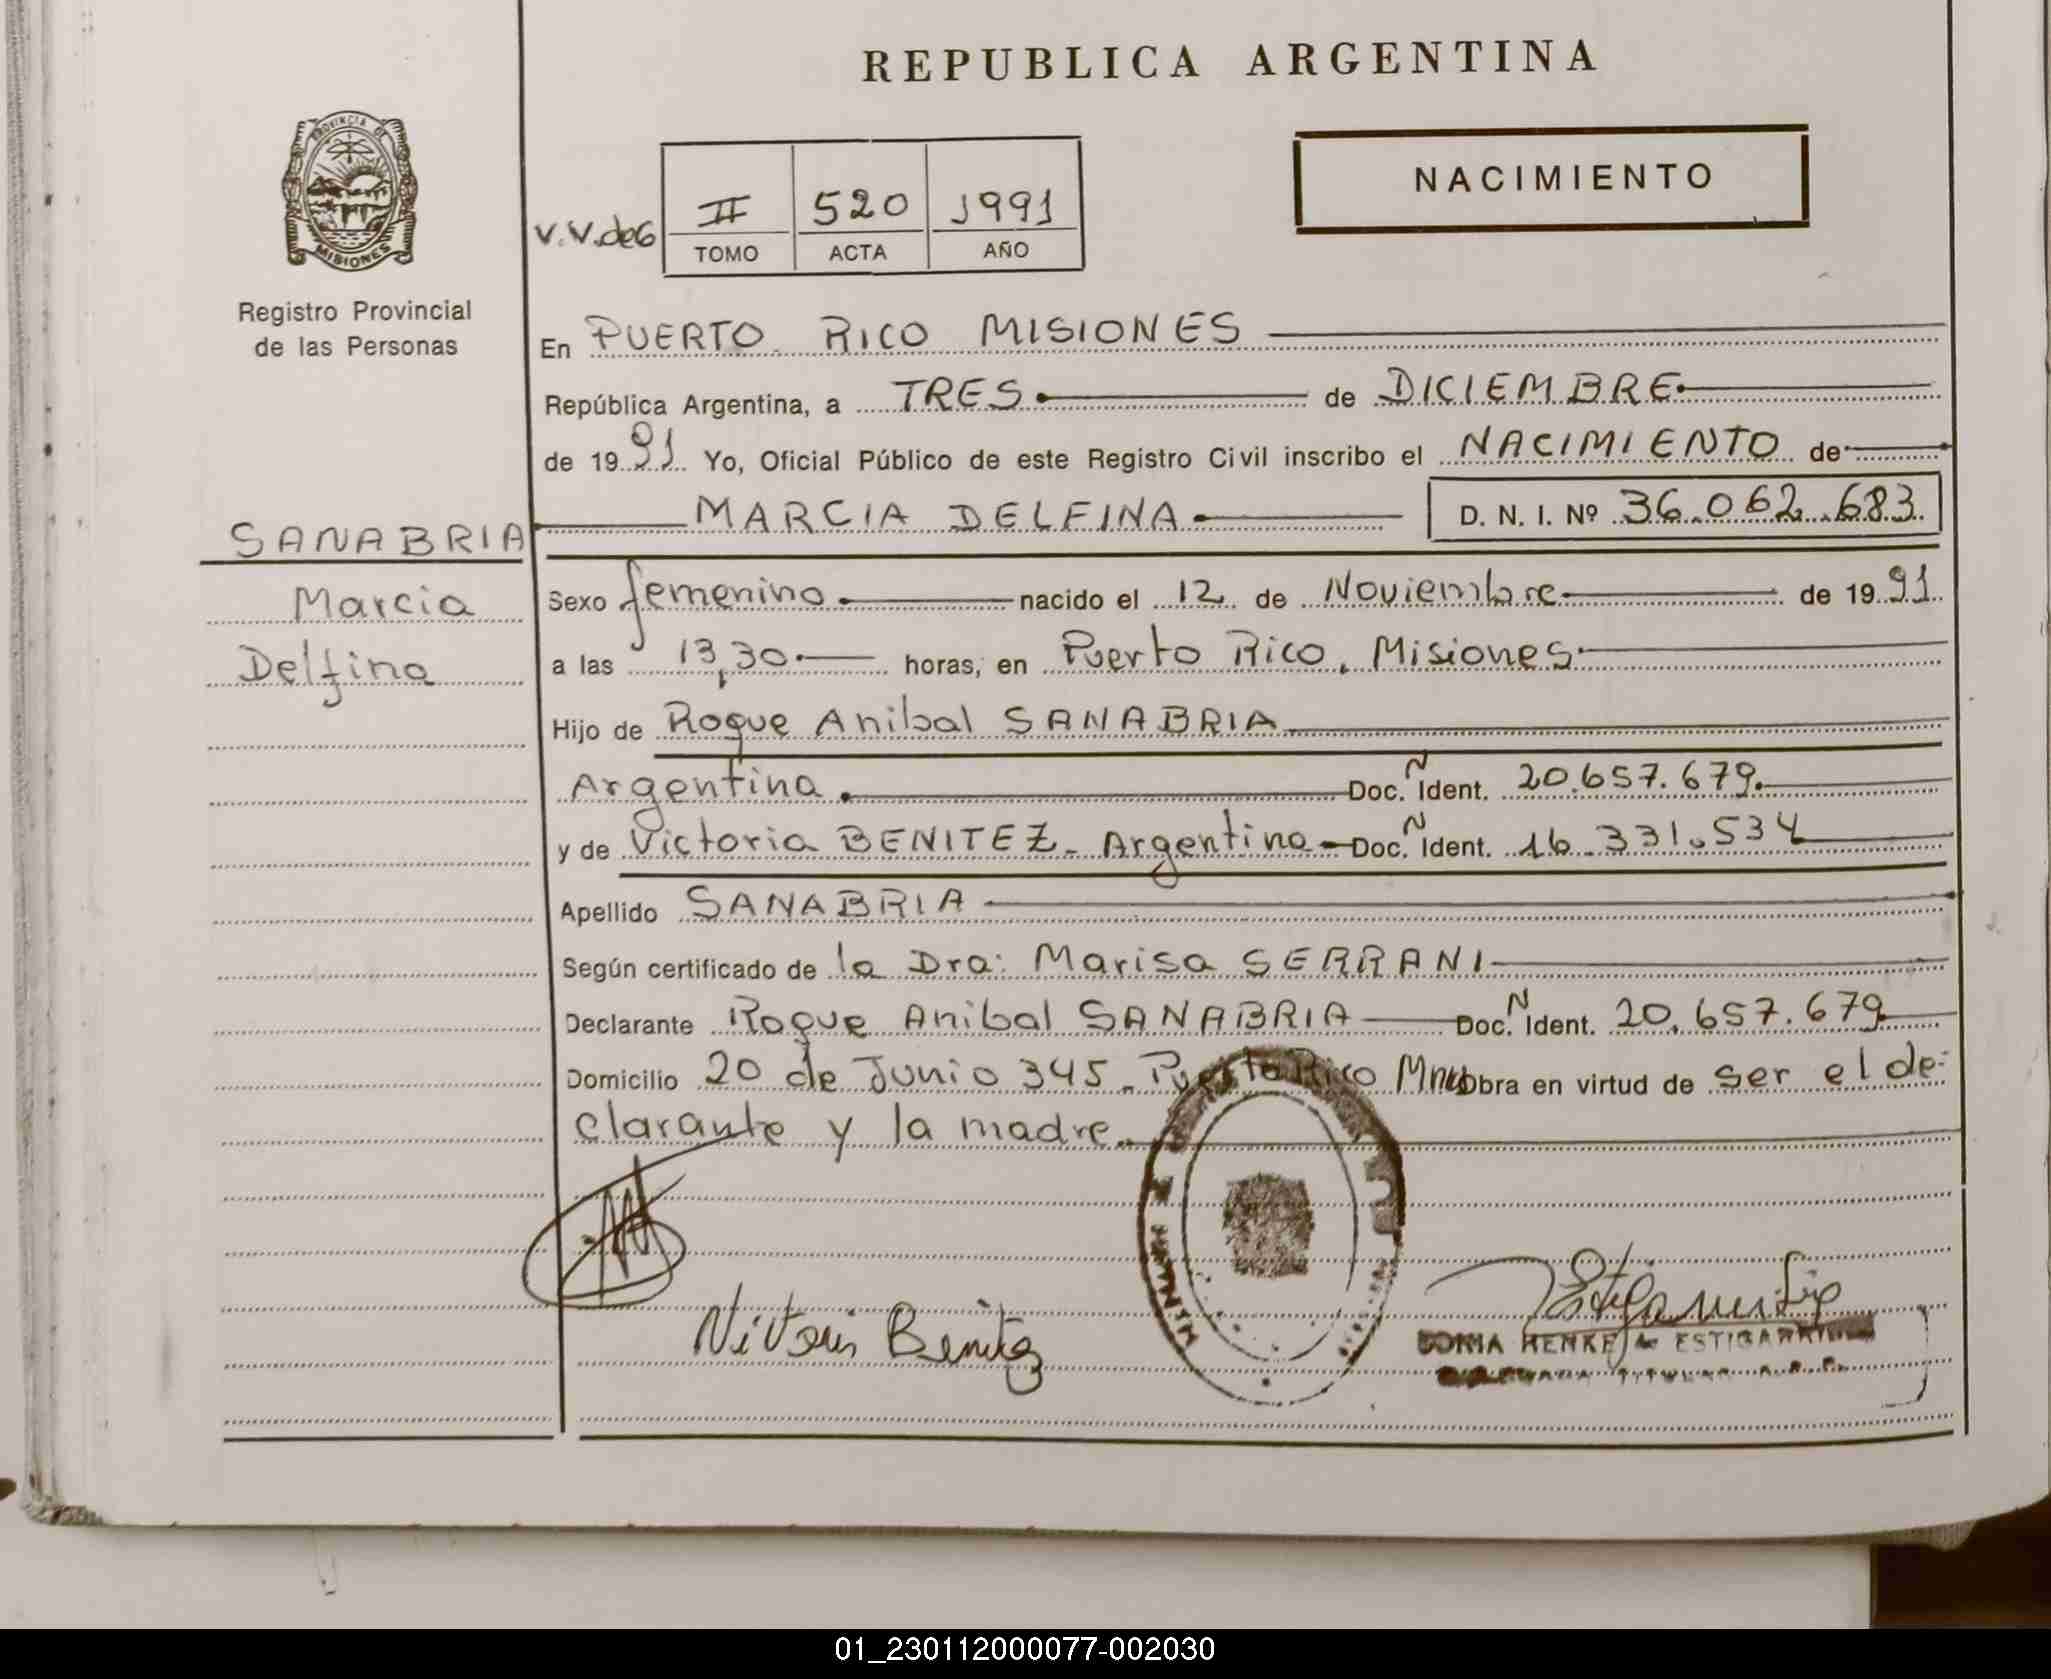 REPUBLICA ARGENTINA
NACIMIENTO
PROVINCIA DE
MISIONES
Registro Provincial
de las Personas
V.V. de G
II 520 1991
TOMO ACTA AÑO
En PUERTO RICO MISIONES
República Argentina, a TRES de DICIEMBRE
de 1991 Yo, Oficial Público de este Registro Civil inscribo el NACIMIENTO de
MARCIA DELFINA D. N. I. Nº 36.062.683
SANABRIA
Marcia
Delfina
Sexo femenino nacido el 12 de Noviembre de 1991
a las 13,30 horas, en Puerto Rico, Misiones
Hijo de Roque Anibal SANABRIA
Argentina Doc. N Ident. 20.657.679
y de Victoria BENITEZ - Argentina Doc. N Ident. 16.331.534
Apellido SANABRIA
Según certificado de la Dra: Marisa SERRANI
Declarante Roque Anibal SANABRIA Doc. N Ident. 20.657.679
Domicilio 20 de Junio 345 - Puerto Rico Mnes Obra en virtud de ser el de-
clarante y la madre
Victoria Benitez
SONIA HENKE de ESTIGARRIBIA
TITULAR
01_230112000077-002030